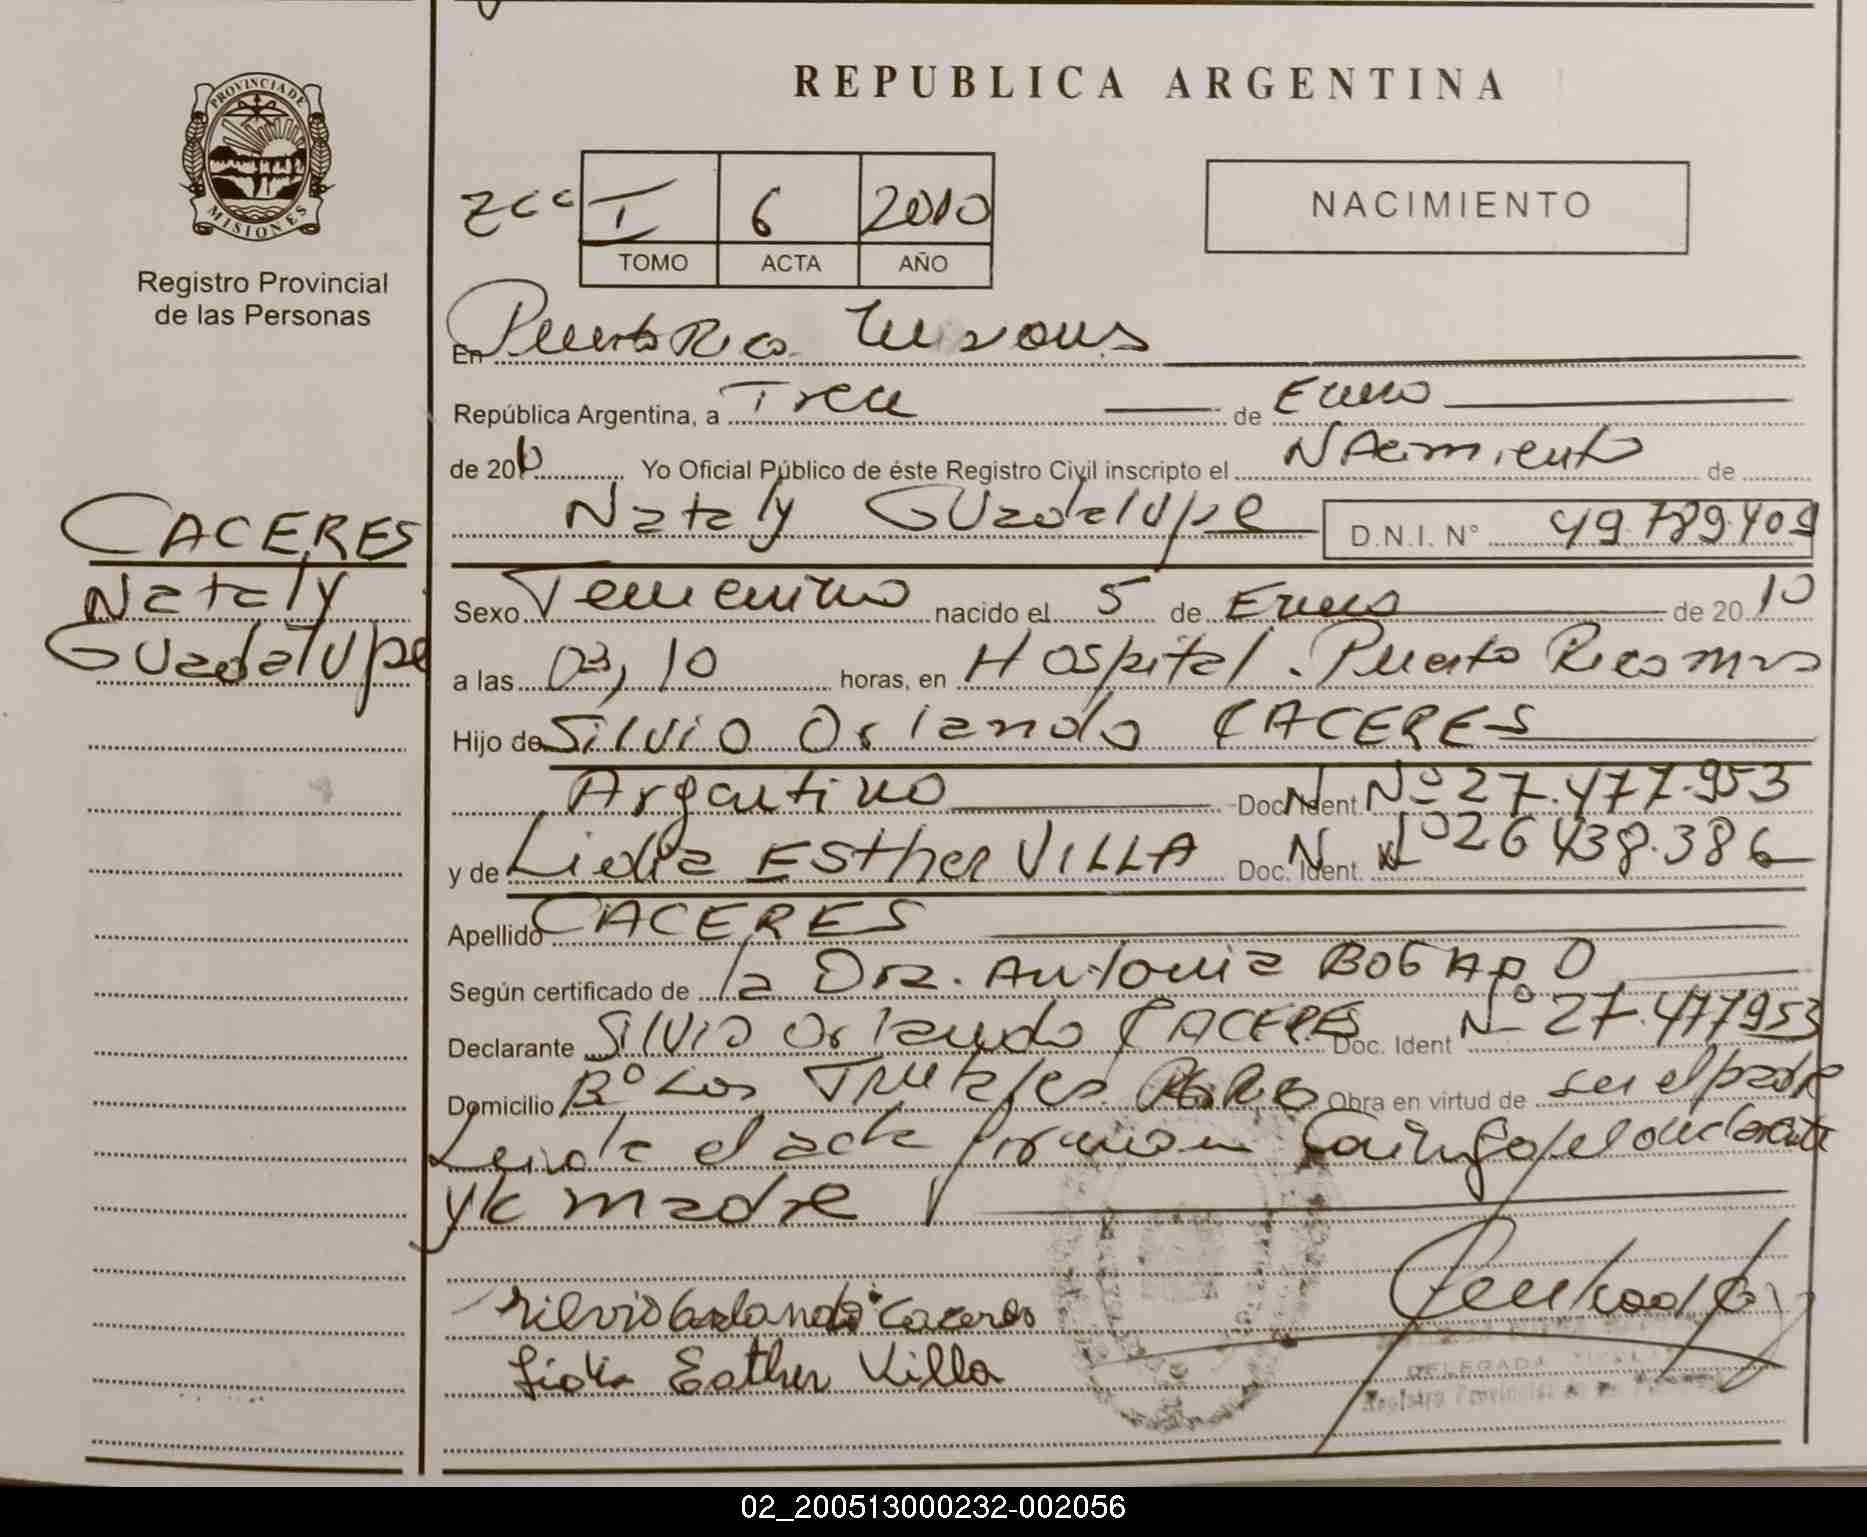 REPUBLICA ARGENTINA
PROVINCIA DE MISIONES
Registro Provincial
de las Personas
I 6 2010
TOMO ACTA AÑO
NACIMIENTO
En Puerto Rico Misiones
República Argentina, a Trece de Enero
de 2010 Yo Oficial Público de éste Registro Civil inscripto el NAcimiento de
Nataly GUadalupe D.N.I. N° 49.789.409
CACERES
Nataly
GUadalupe
Sexo Femenino nacido el 5 de Enero de 2010
a las 03,10 horas, en Hospital. Puerto Rico mns
Hijo de Silvio Orlando CACERES
Argentino Doc. Ident. N° 27.477.953
y de Lidia ESther VILLA Doc. Ident. N° 26 438.386
Apellido CACERES
Según certificado de la Dra. Antonia BOGADO
Declarante Silvio Orlando CACERES Doc. Ident N° 27.477953
Domicilio B° Los Obra en virtud de ser el padre
Leida el acta firman conmigo el declarante
y la madre
Silvio Orlando Caceres
Lidia Esther Villa
DELEGADA
Registro Provincial de las Personas
02_200513000232-002056